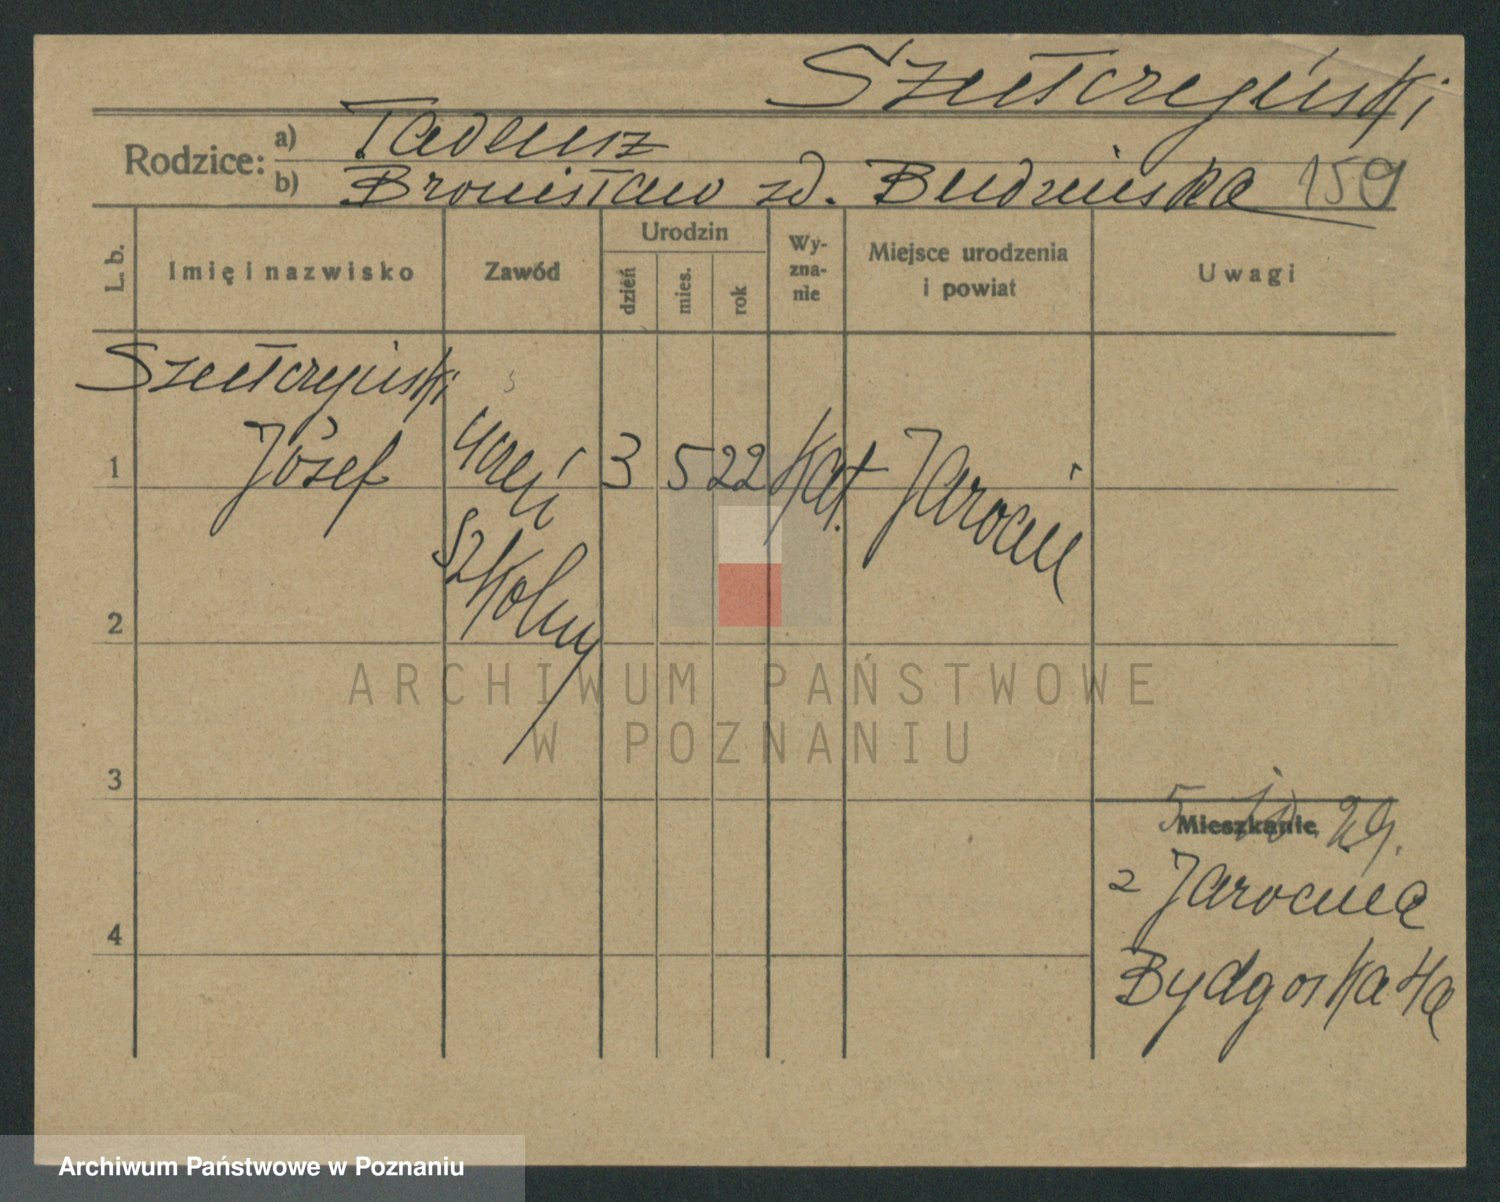 Szełczyński
Rodzice: a) Tadeusz
b) Bronisław zd. Budzińska 159
L. b.
Imię i nazwisko
Zawód
Urodzin
dzień
mies.
rok
Wy-
zna-
nie
Miejsce urodzenia
i powiat
Uwagi
Szełczyński
1 Józef
uczeń
szkolny
3 5 22 Kat. Jarocin
2
3
4
Mieszkanie
5 29.
z Jarocina
Bydgoska 4a
ARCHIWUM PAŃSTWOWE
W POZNANIU
Archiwum Państwowe w Poznaniu